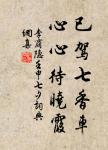 已駕七香車
心心待曉霞
李商隱壬申七夕詞典
網集